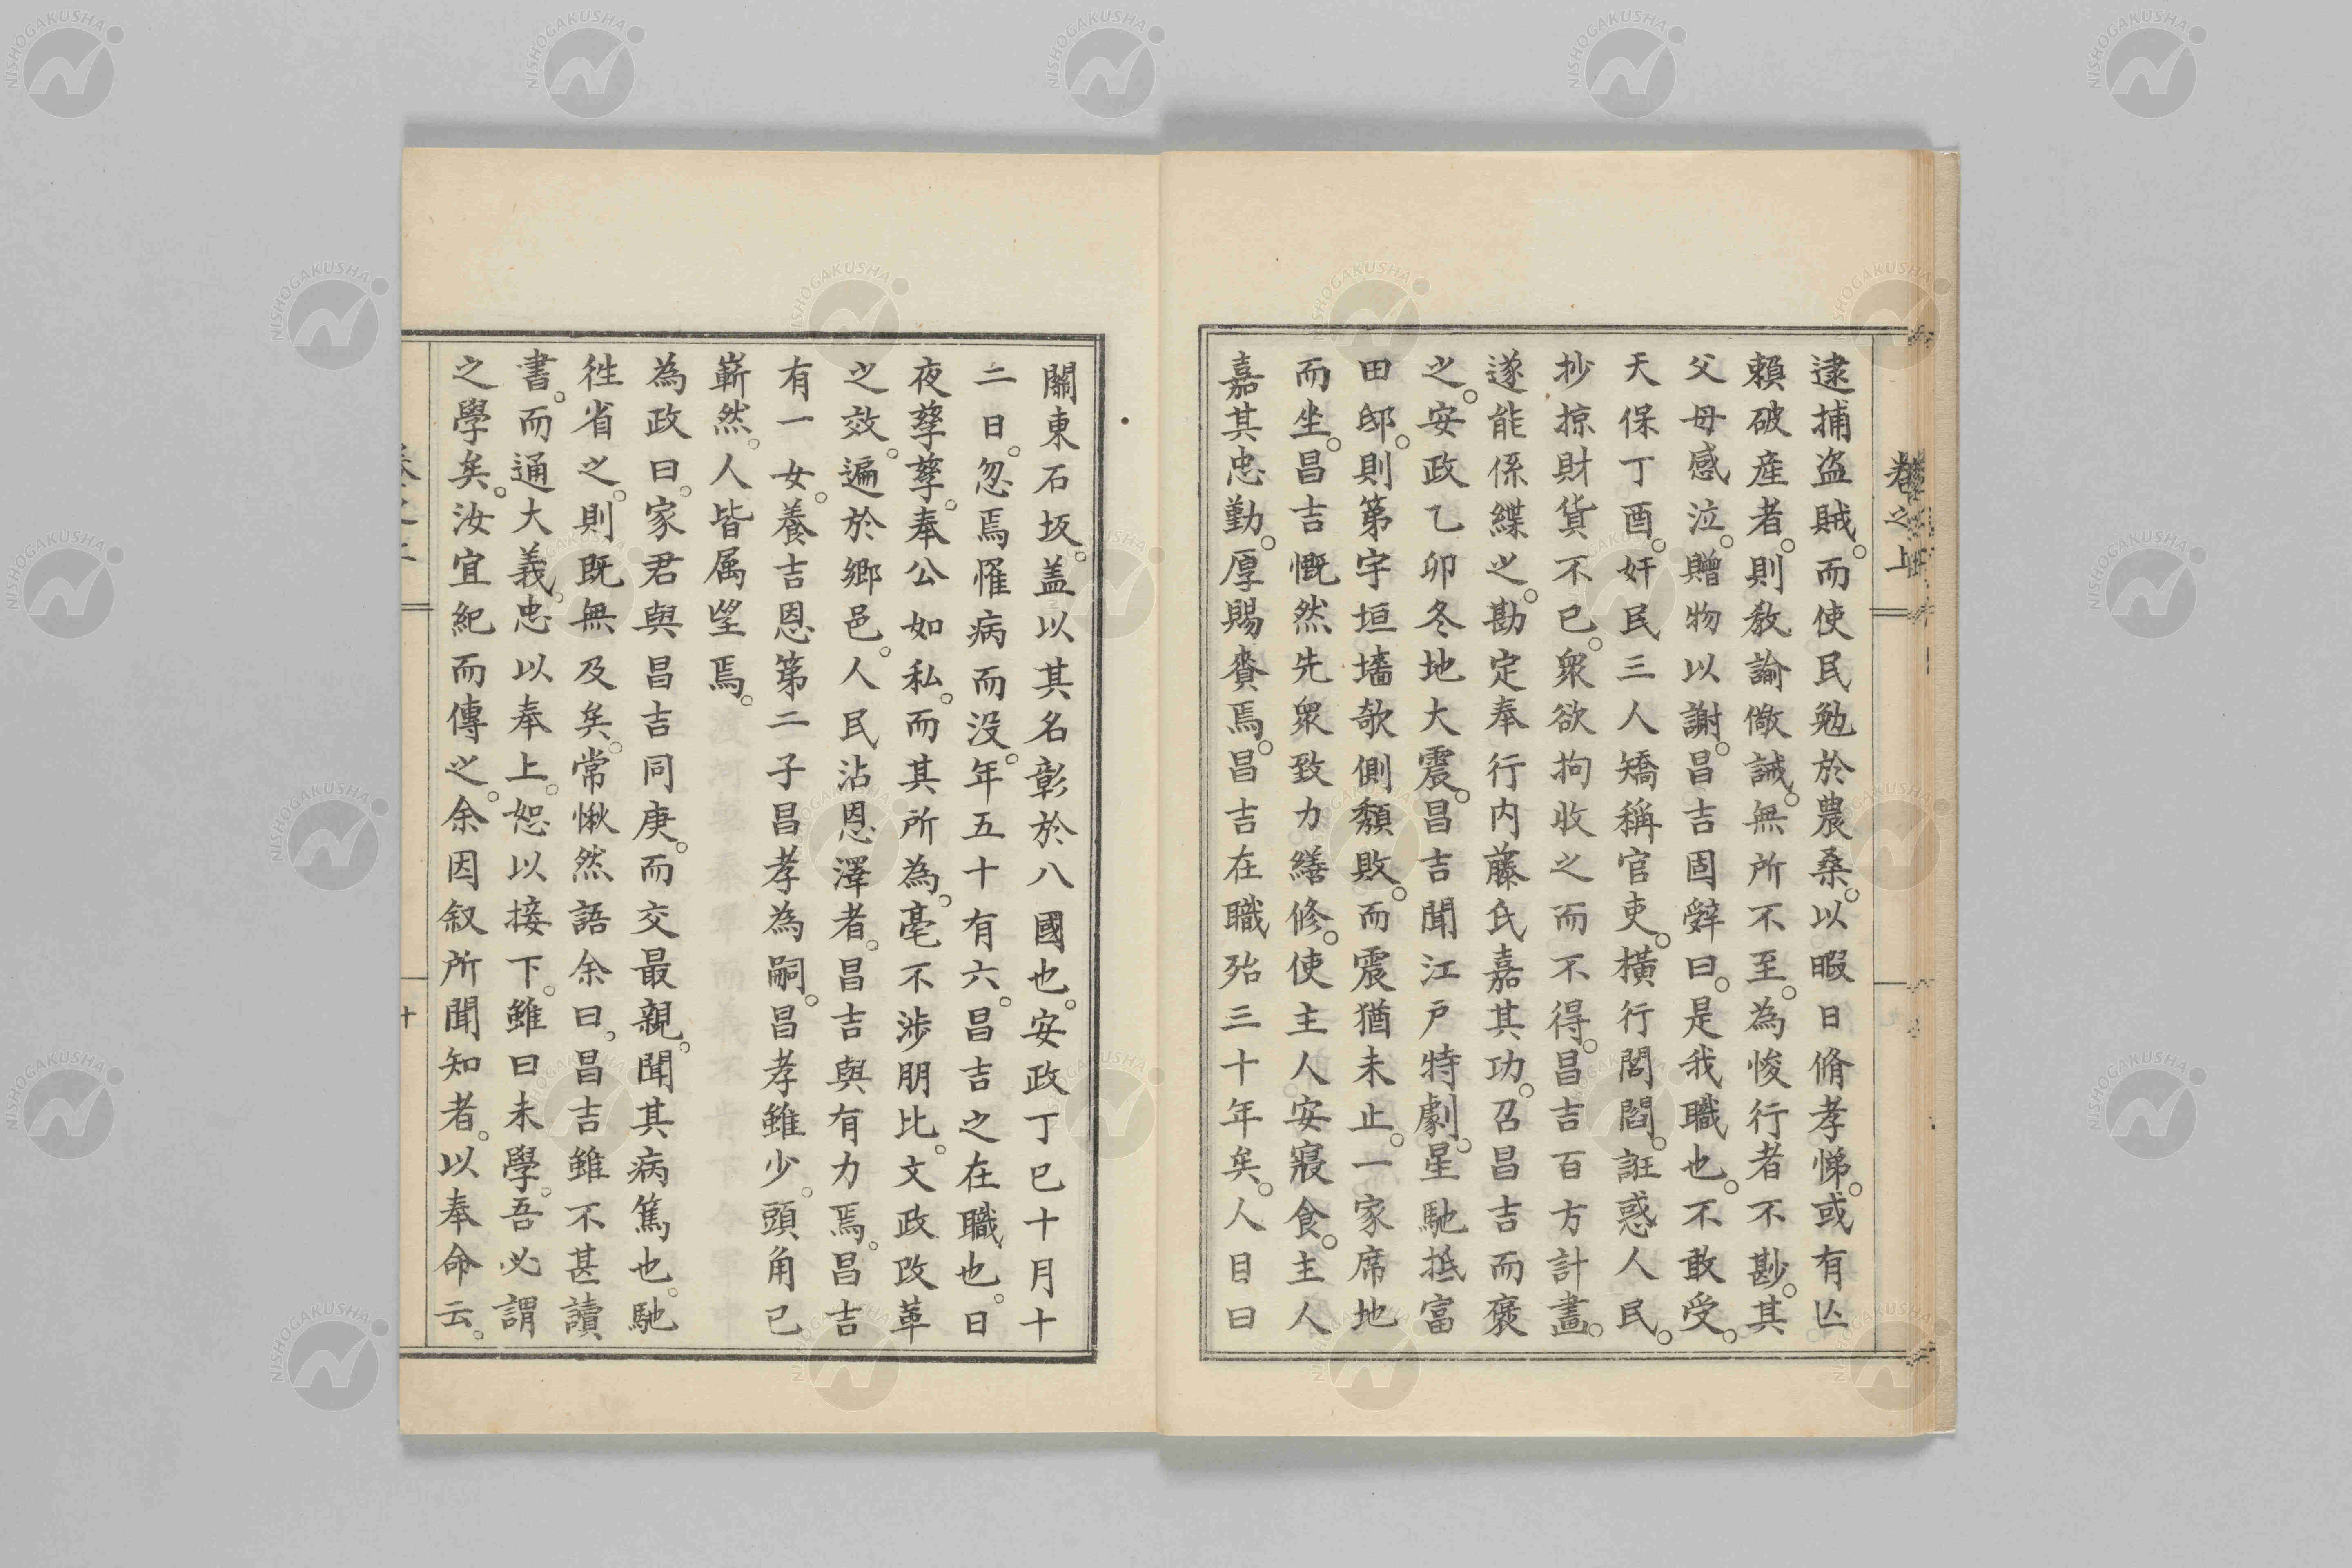 卷之上
逮捕盗賊。而使民勉於農桑。以暇日脩孝悌。或有亾
賴破産者。則教諭儆誡。無所不至。為悛行者不尠。其
父母感泣。贈物以謝。昌吉固辤曰。是我職也。不敢受。
天保丁酉。奸民三人矯稱官吏。橫行閭閻。誑惑人民。
抄掠財貨不已。衆欲拘收之而不得。昌吉百方計畫。
遂能係緤之。勘定奉行内藤氏嘉其功。召昌吉而褒
之。安政乙卯冬地大震。昌吉聞江戸特劇。星馳抵富
田邸。則第宇垣墻欹側頽敗。而震猶未止。一家席地
而坐。昌吉慨然先衆致力繕修。使主人安寢食。主人
嘉其忠勤。厚賜賚焉。昌吉在職殆三十年矣。人目曰
關東石坂。盖以其名彰於八國也。安政丁巳十月十
二日。忽焉罹病而没。年五十有六。昌吉之在職也。日
夜孳孳。奉公如私。而其所為。毫不涉朋比。文政改革
之效。遍於鄉邑。人民沾恩澤者。昌吉與有力焉。昌吉
有一女。養吉恩第二子昌孝為嗣。昌孝雖少。頭角已
嶄然。人皆属望焉。
為政曰。家君與昌吉同庚。而交最親。聞其病篤也。馳
徃省之。則既無及矣。常愀然語余曰。昌吉雖不甚讀
書。而通大義。忠以奉上。恕以接下。雖曰未學。吾必謂
之學矣。汝宜紀而傳之。余因叙所聞知者。以奉命云。
十
NISHOGAKUSHA